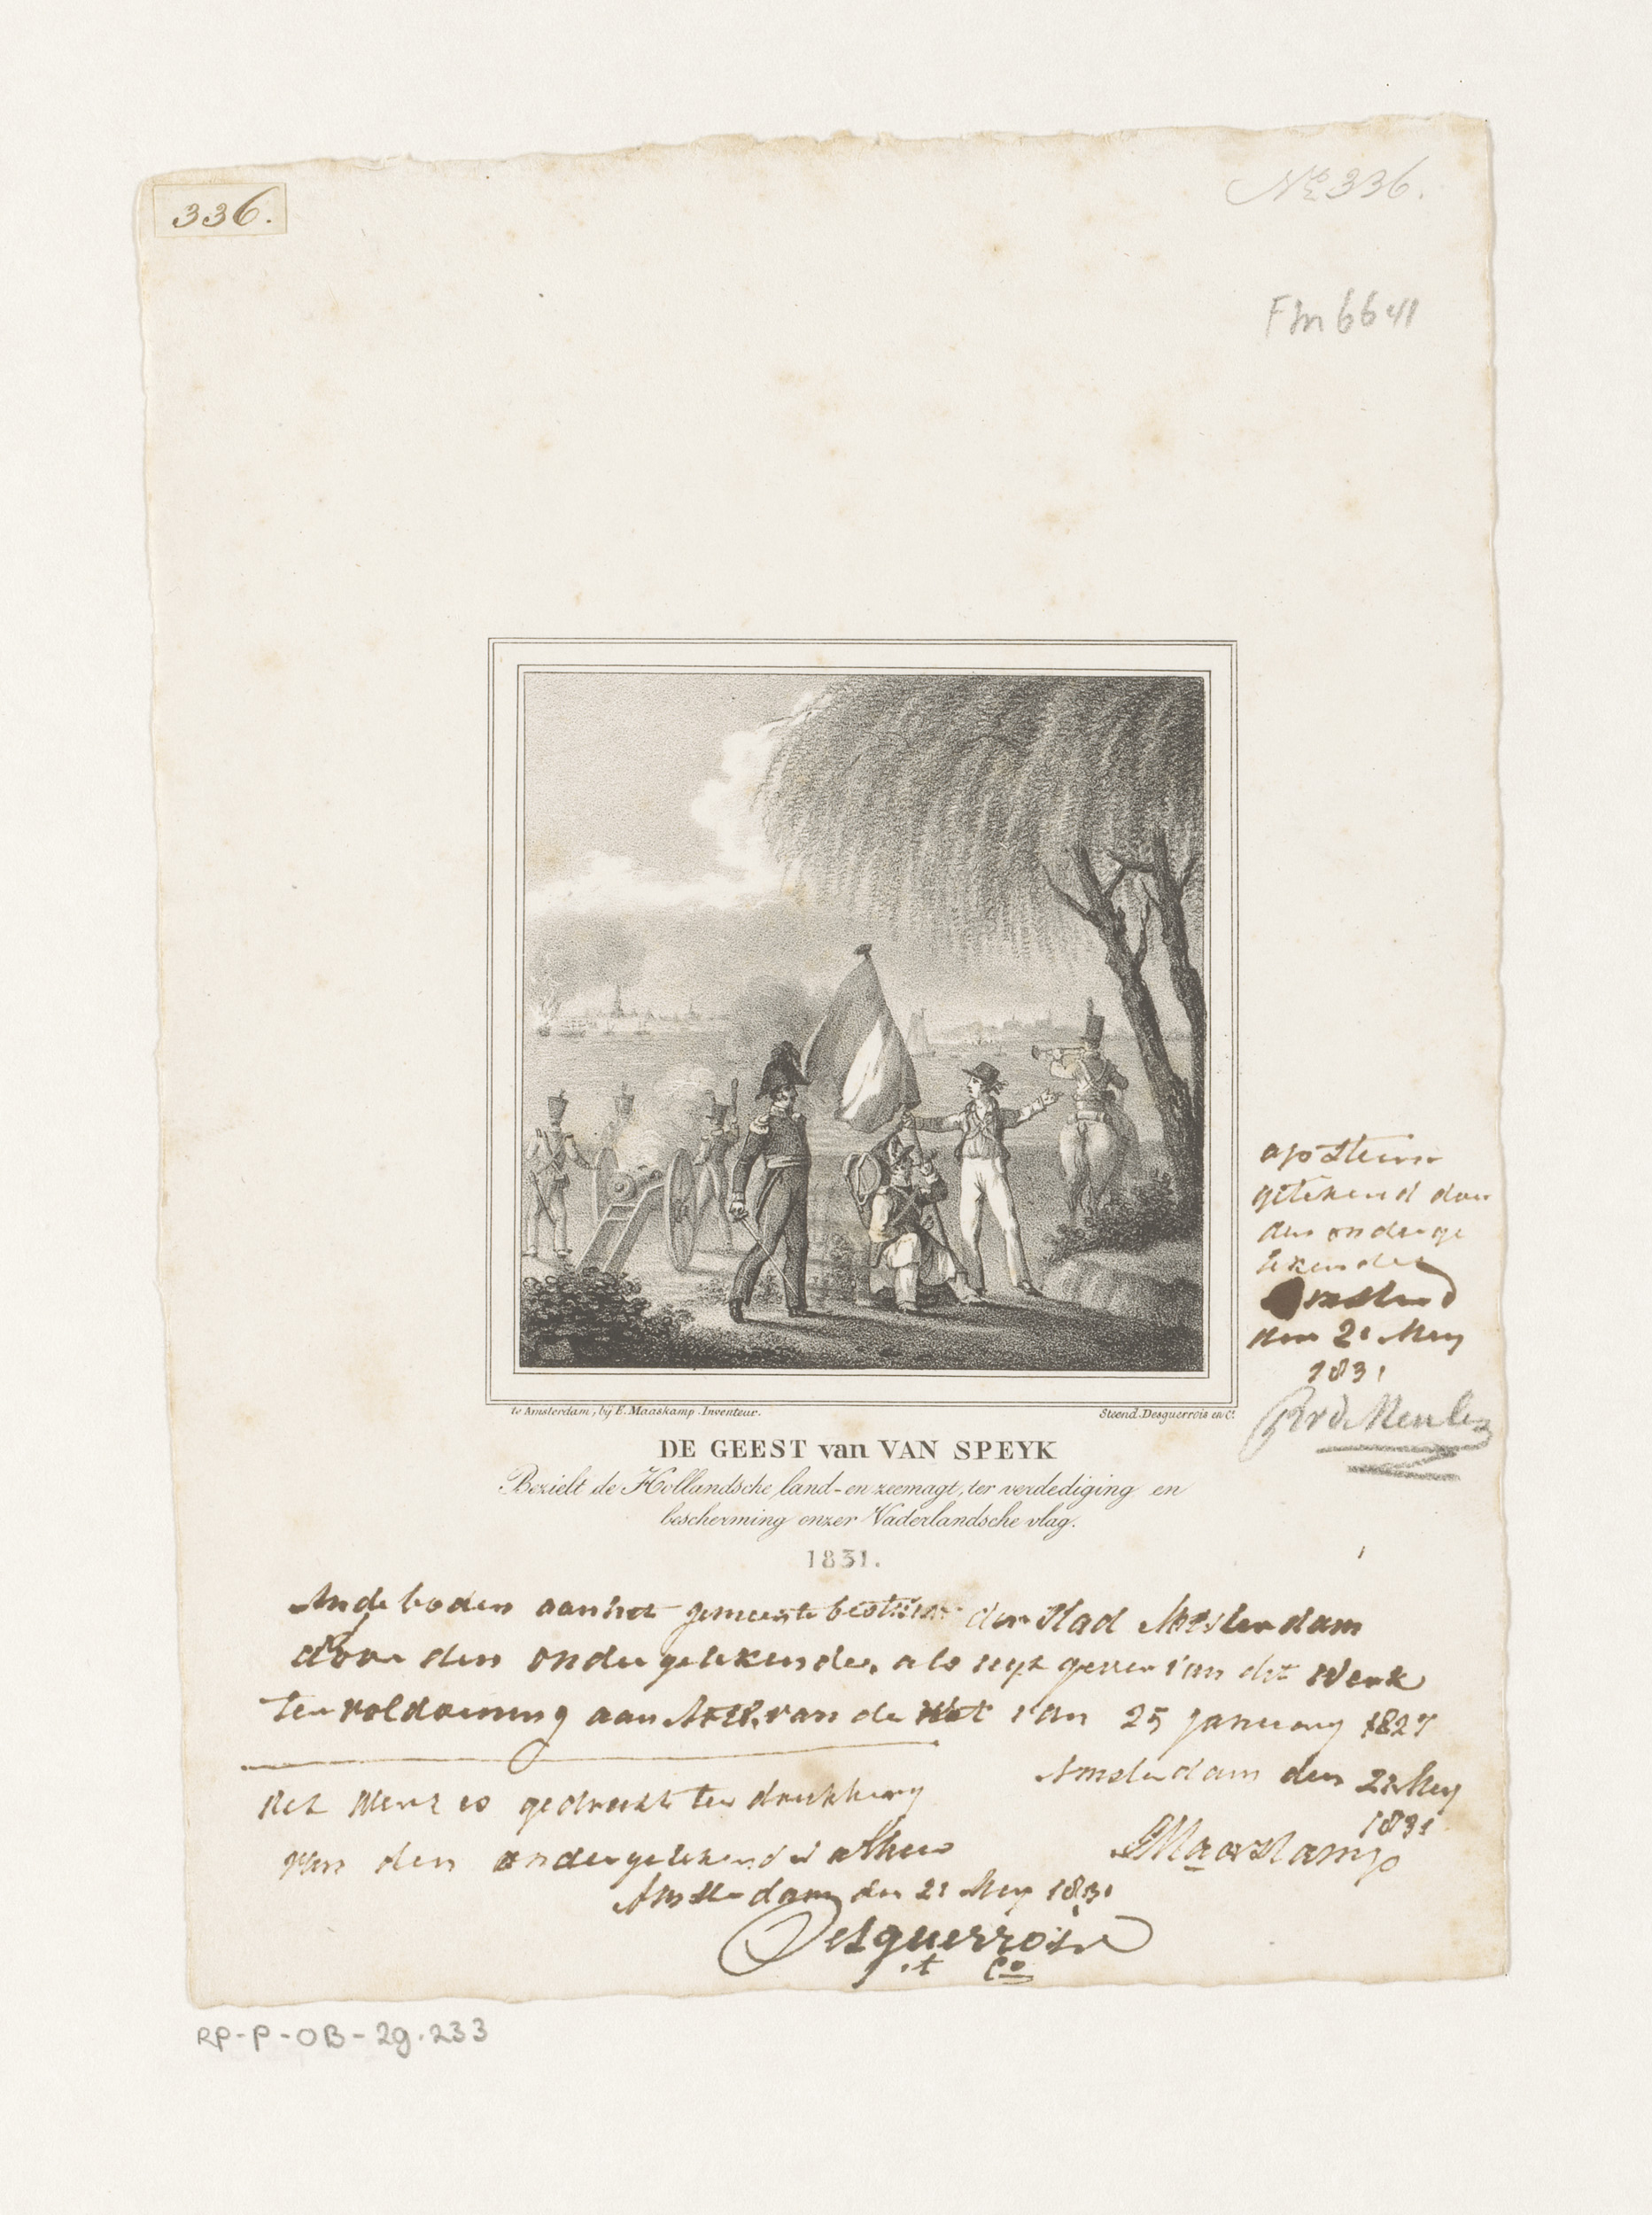 336.
No 336.
Fm 6641
op Steen
getekend door
den onderge
tekende
den 21 Mey
1831
te Amsterdam, bij E. Maaskamp Inventeur.
Steend. Desguerrois en Co.
DE GEEST van VAN SPEYK
Bezielt de Hollandsche land-en zeemagt, ter verdediging en
bescherming onzer Vaderlandsche vlag.
1831.
Angeboden aan het gemeente bestuur der Stad Amsterdam
door den ondergetekende, als uytgever van dit Werk
ter voldoening aan van de Wet van 25 January 1827
Amsterdam den 21 Mey
1831
Het Werk is gedrukt ter drukkery
van den ondergetekende alhier
EMaaskamp
Amsterdam den 21 Mey 1831
Desguerrois
et Co
RP-P-OB-29.233